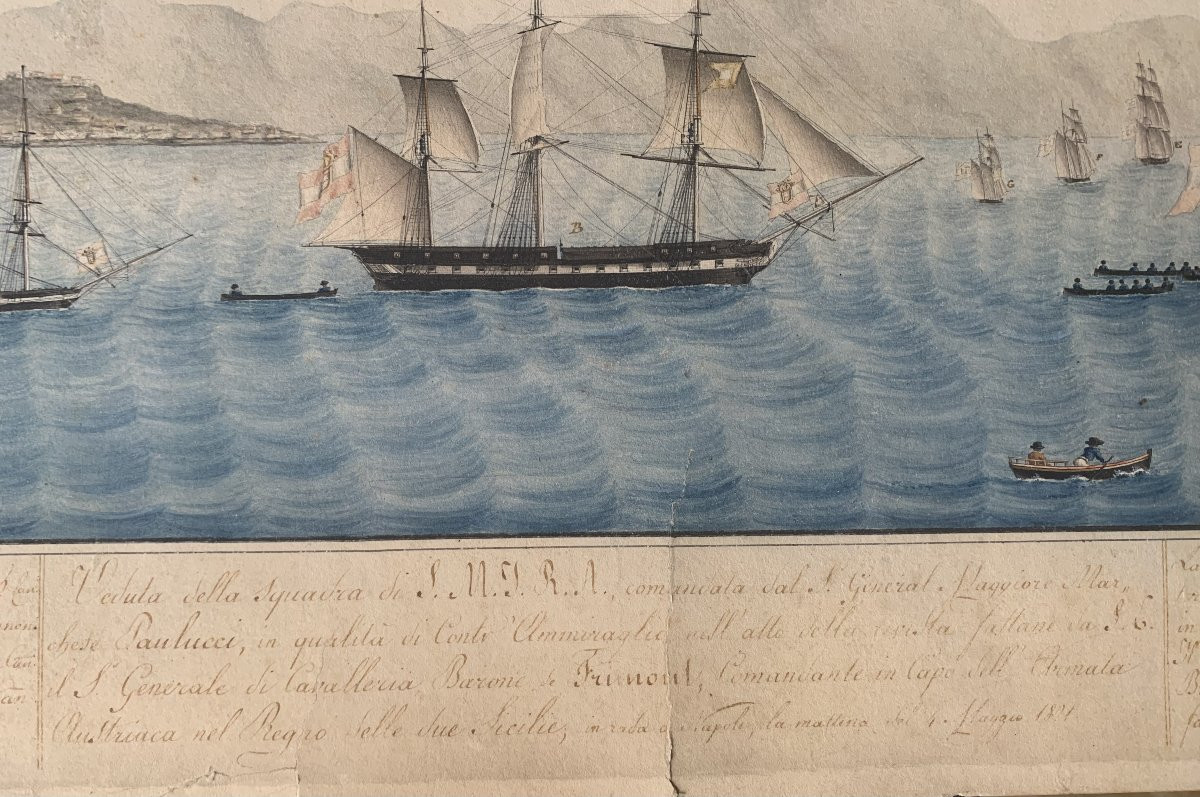 B
G
F
E
Veduta della Squadra di S. M. I. R. A., comandata dal S.r General Maggiore Mar„
chese Paulucci, in qualità di Contr'Ammiraglio nell'atto della rivista fattane da S. E.
il S.r Generale di Cavalleria Barone de Frimont, Comandante in Capo dell'Armata
Austriaca nel Regno delle due Sicilie, in rada a Napoli, la mattina del 4. Maggio 1821